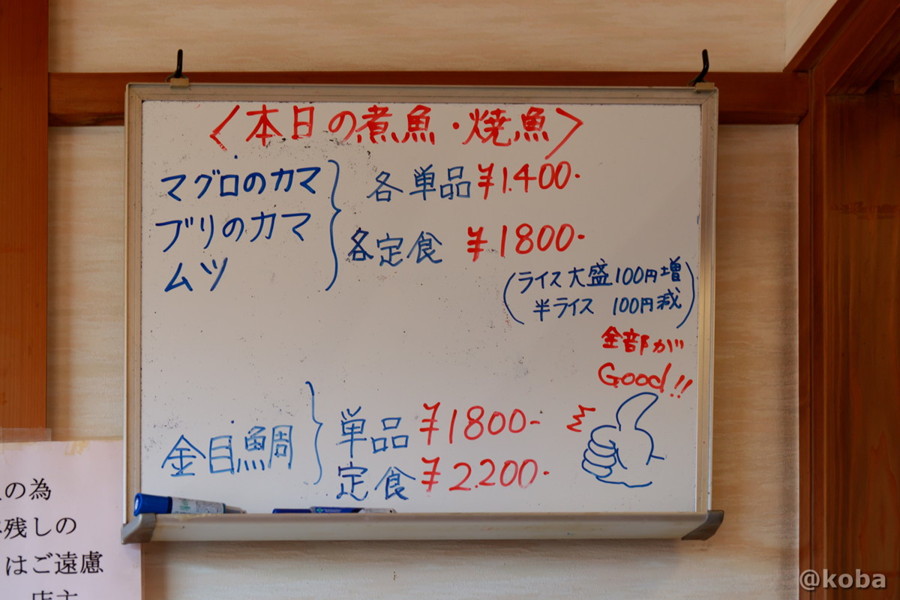 〈本日の煮魚・焼魚〉
マグロのカマ
ブリのカマ
ムツ
各単品 ¥1.400-
各定食 ¥1800-
(ライス大盛100円増
半ライス 100円減)
全部が
Good!!
金目鯛
単品 ¥1800-
定食 ¥2.200-
の為
残しの
はご遠慮
店主
@koba